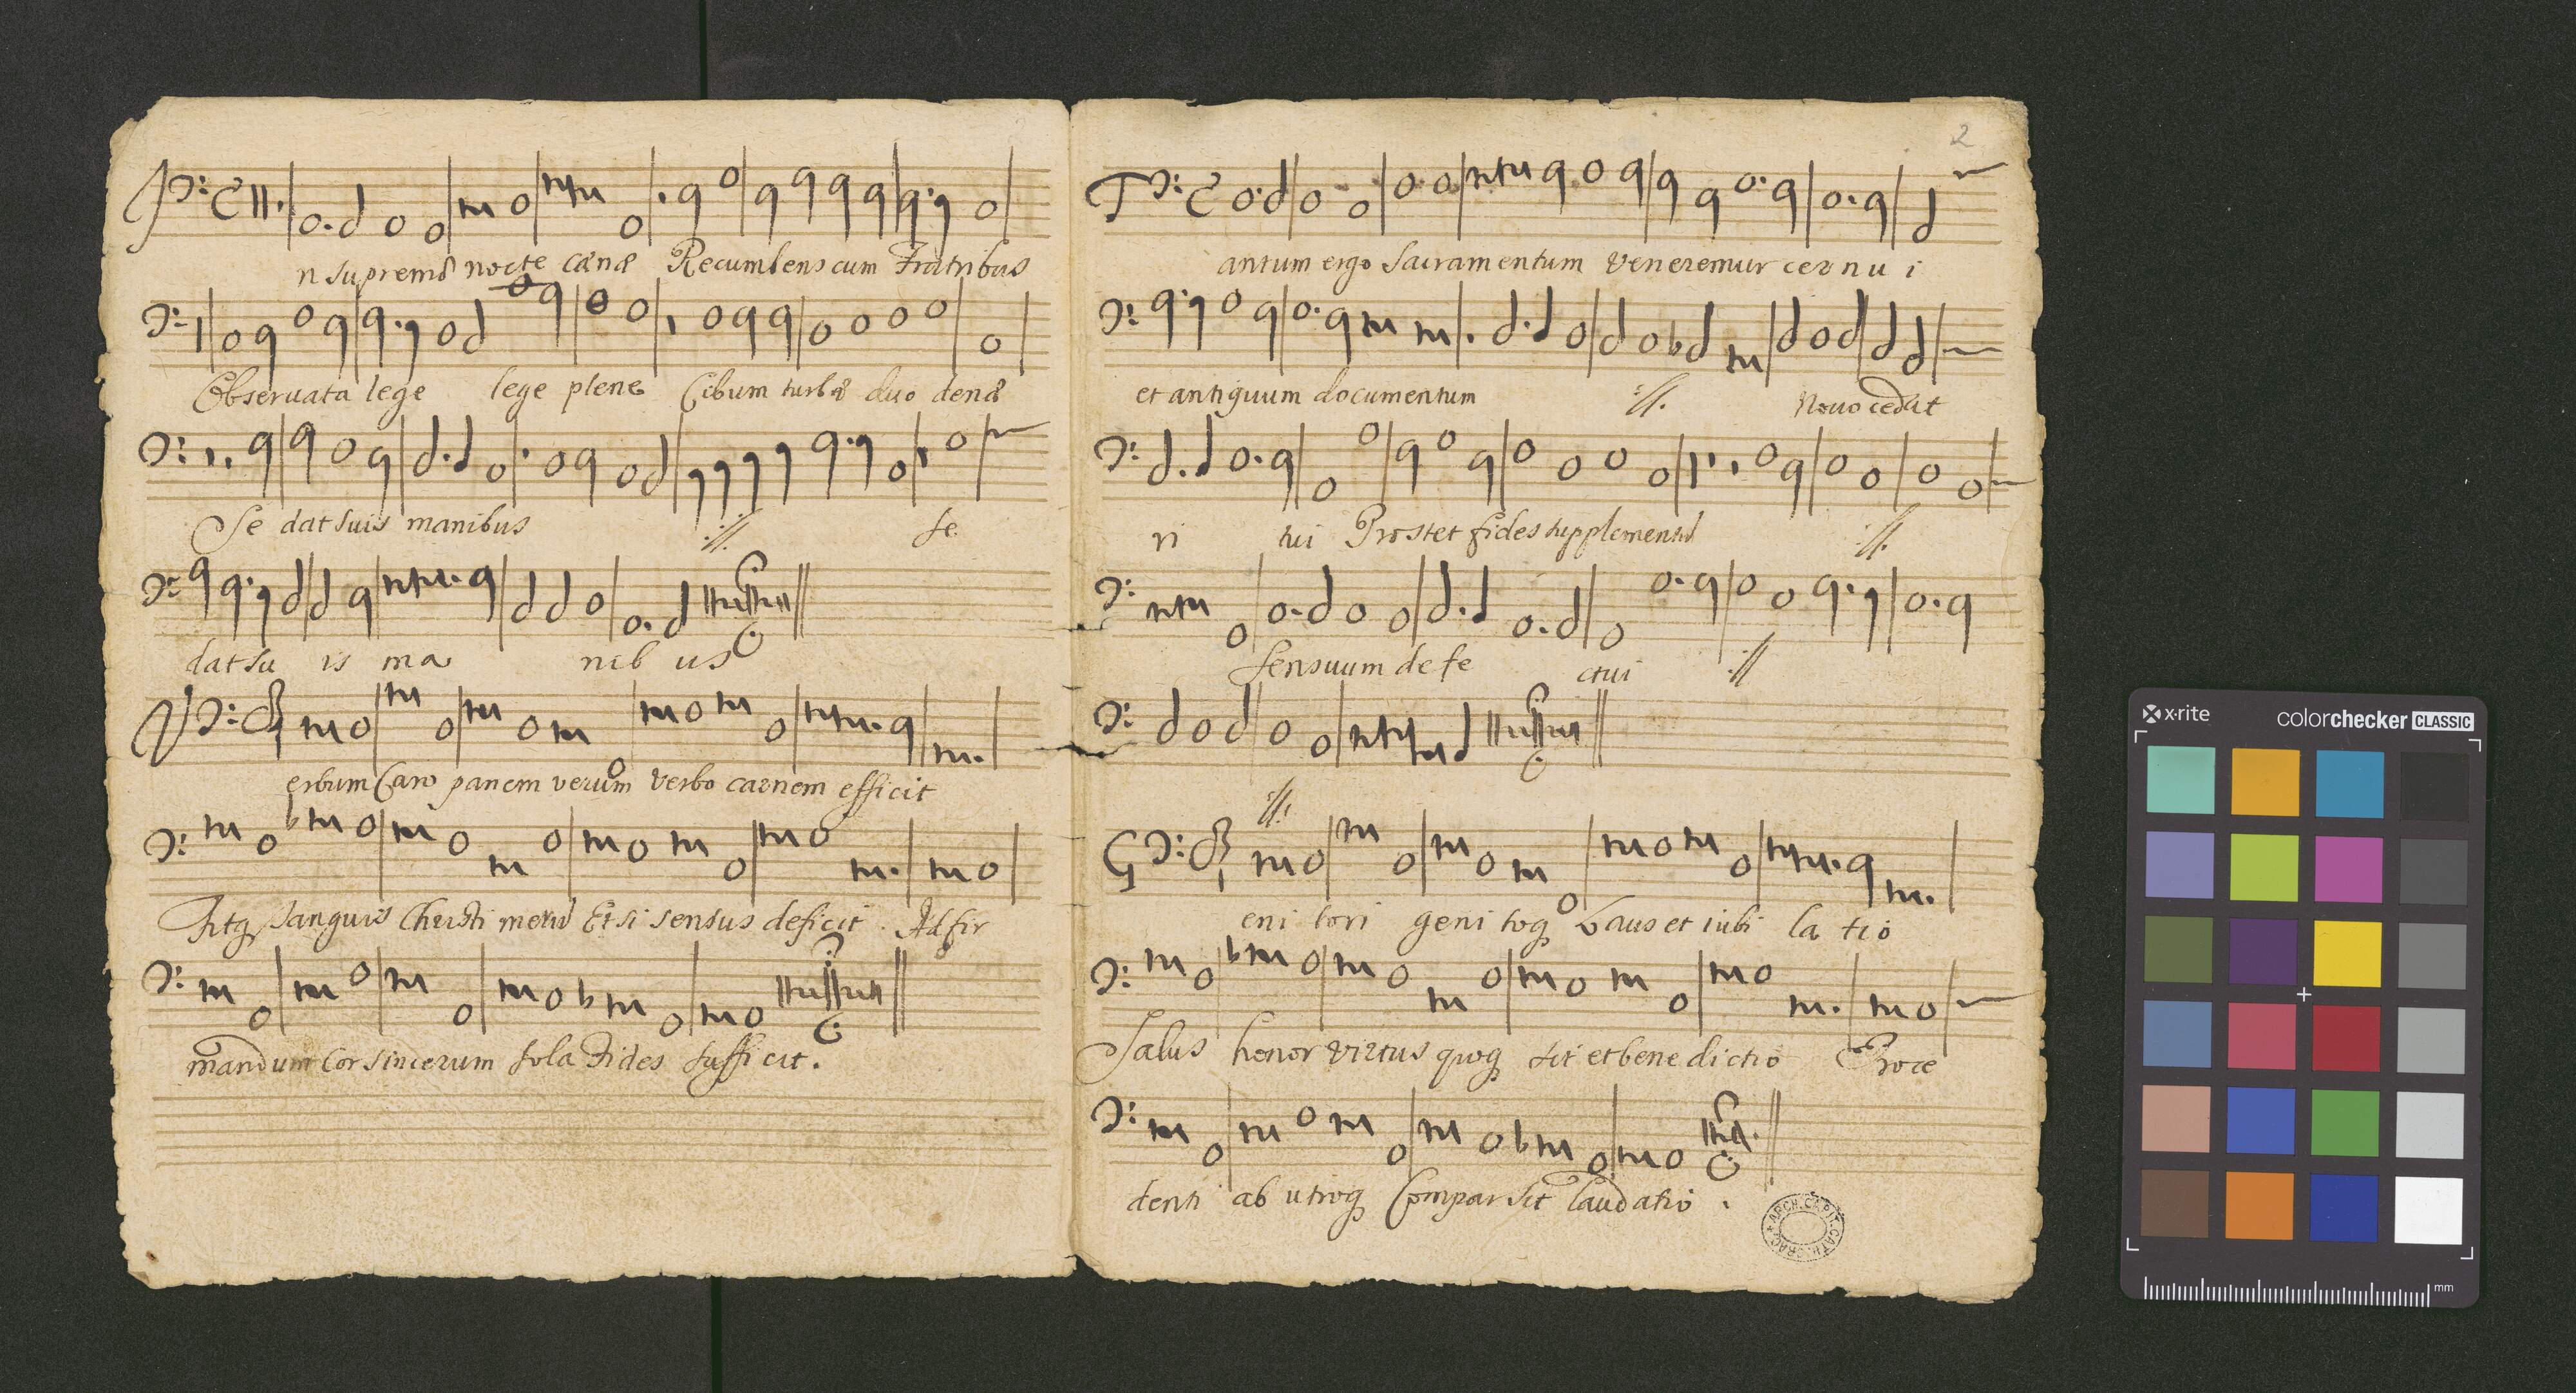 In supremæ nocte cænæ Recumbens cum Fratribus
Observata lege lege plene Cibum turbæ duo denæ
Se dat suis manibus :||: se
dat su is ma nib us
Verbum Caro panem verum verbo carnem efficit
Atq sanguis Christi merũ Et si sensus deficit Ad fir
mandum Cor sincerum sola Fides suffi cit.
2
Tantum ergo Sacramentum veneremur cer nu i
et antiquum documentum :||: Novo cedat
ri tui Prostet fides supplementũ :||:
sensuum defe ctui :||:
:||:
Geni tori geni toq Laus et iubi la tio
Salus honor virtus quoq sit et bene dictio Proce
denti ab utroq Compar sit laudatio .
ARCH. CAPIT. CATH. CRAC.
x·rite
colorchecker CLASSIC
mm